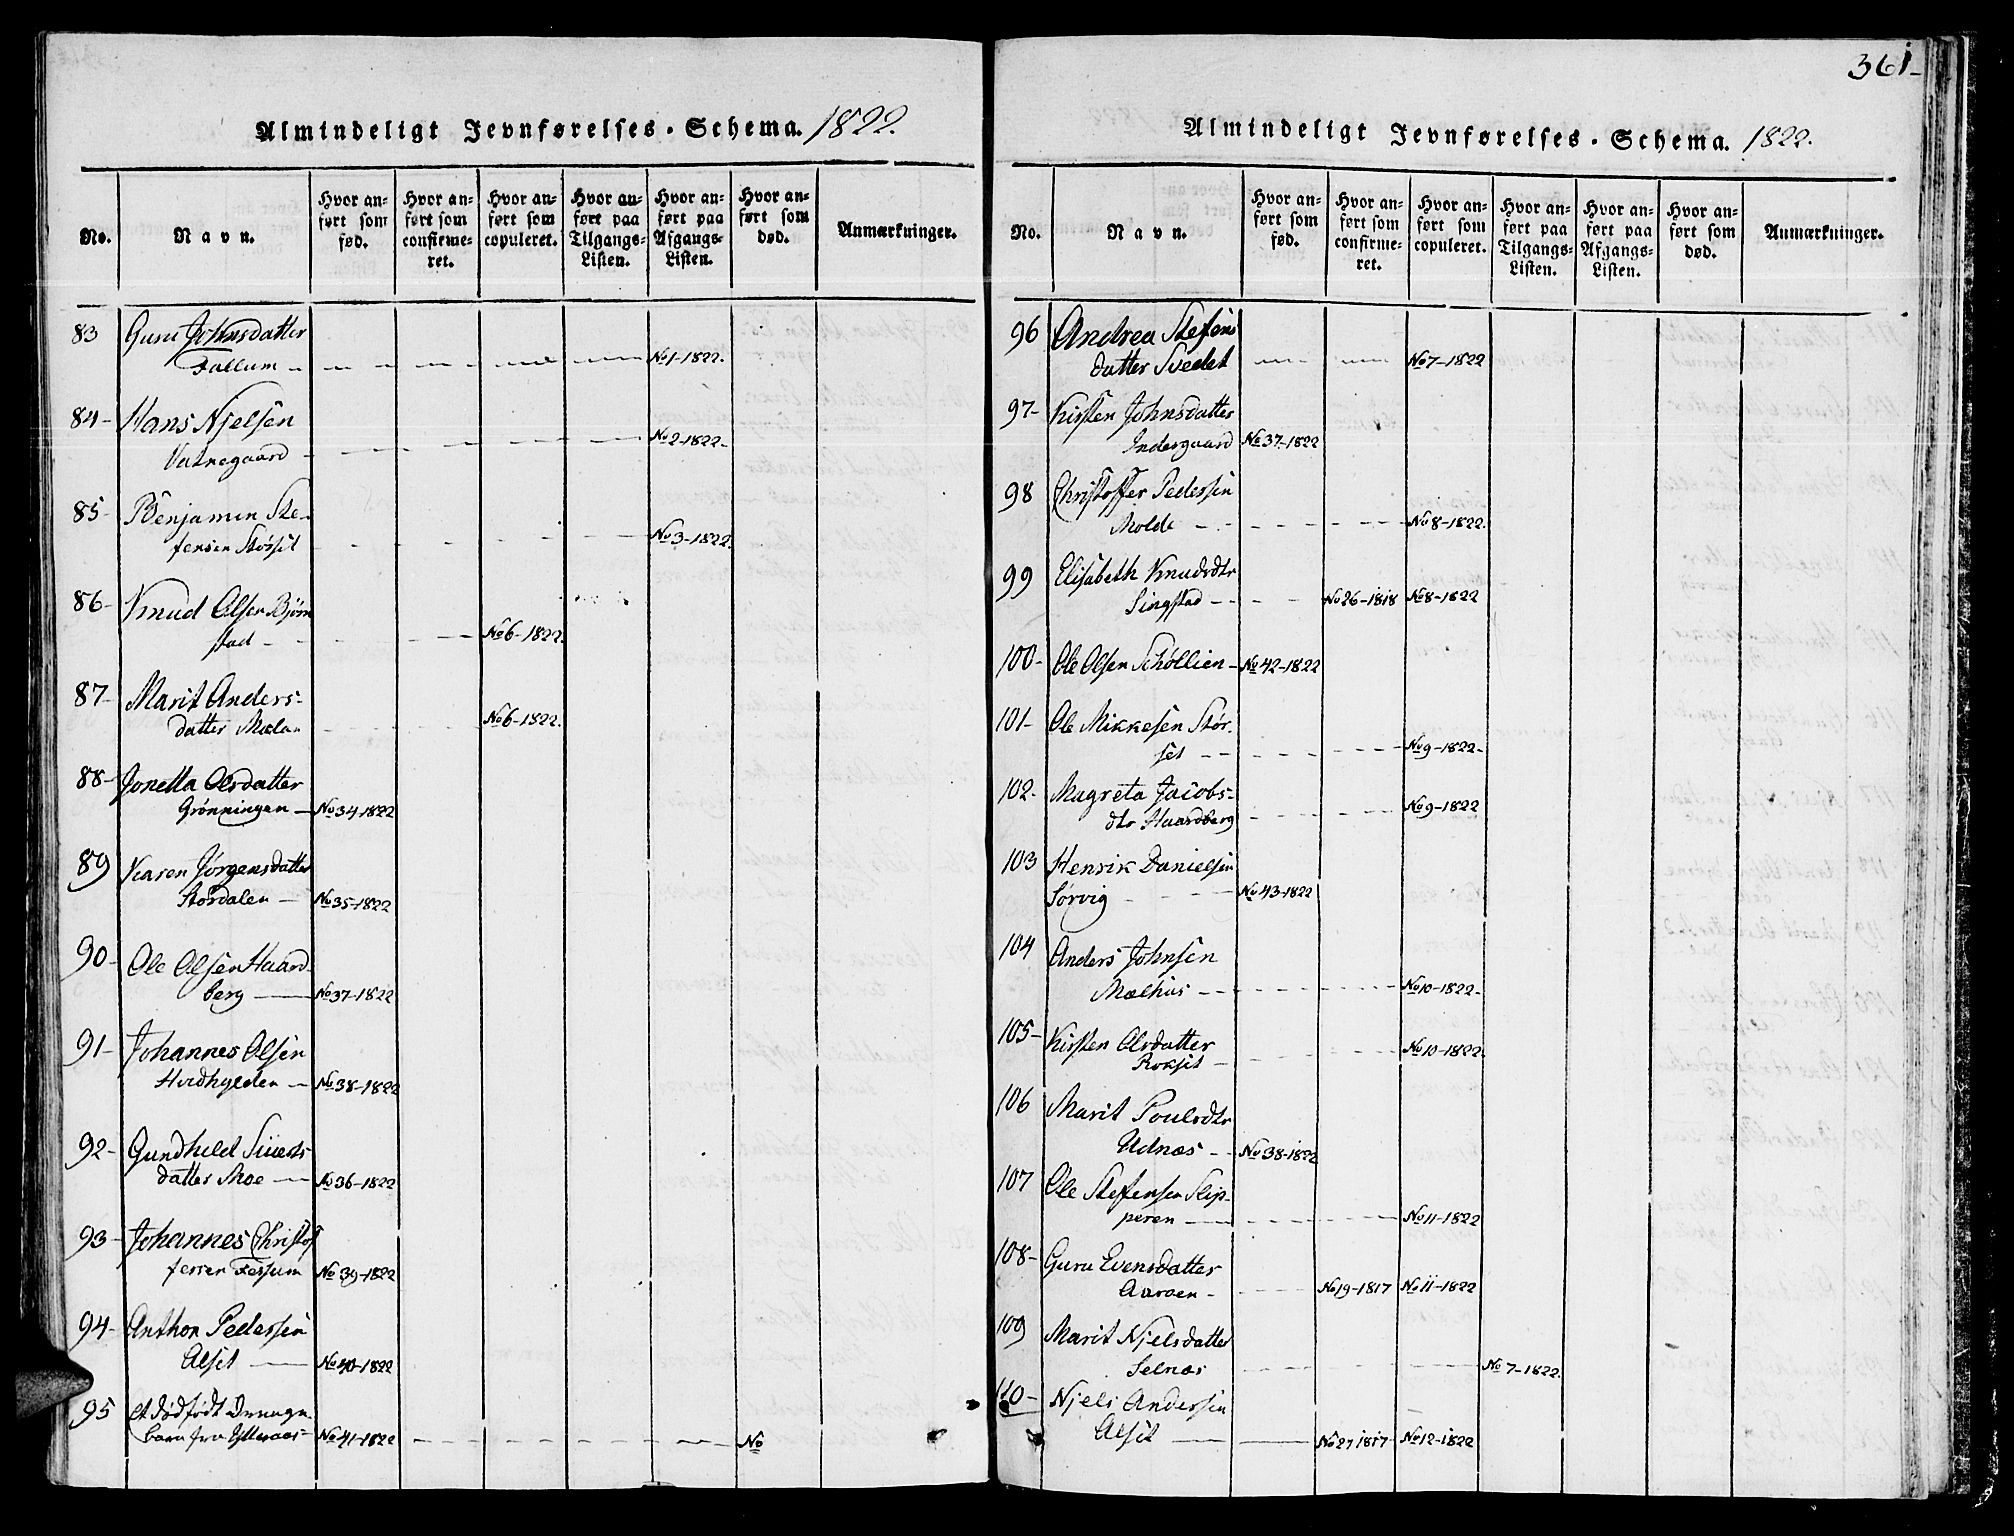 Almindeligt Jevnførelses-Schema. 1822.
No.
Navn.
Hvor anført som født.
Hvor anført som confirmeret.
Hvor anført som copuleret.
Hvor anført paa Tilgangs-Listen.
Hvor anført paa Afgangs-Listen.
Hvor anført som død.
Anmærkninger.
83 Guru Johnsdatter
Fallum - No 1-1822.
84- Hans Njelsen
Vatnegaard - No 2-1822.
85- Benjamin Ste-
fensen Støsset No 3-1822.
86- Knud Olsen Bjørn
stad - No 6-1822.
87- Marit Anders-
datter Mælan No 6-1822.
88- Jonetta Olsdatter
Grønningen - No 34-1822
89 Karen Jørgensdatter
Stordalen - No 35-1822
90- Ole Olsen Haard-
berg - No 37-1822
91- Johannes Olsen
Hvidhylden - No 38-1822
92- Gundhild Siverts
datter Moe - No 36-1822
93- Johannes Christof
fersen Fessum No 39-1822
94- Anthon Pedersen
Alset - No 40-1822
95 et dødfødt Drenge-
barn fra Ytteraas- No 41-1822 No
361-
Almindeligt Jevnførelses-Schema. 1822.
No.
Navn.
Hvor anført som fød.
Hvor anført som confirmeret.
Hvor anført som copuleret.
Hvor anført paa Tilgangs-Listen.
Hvor anført paa Afgangs-Listen.
Hvor anført som død.
Anmærkninger.
96 Andrea Stefens
datter Svedet No 7-1822
97- Kirsten Johnsdatter
Indergaard No 37-1822
98 Christoffer Pedersen
Molde - No 8-1822.
99 Elisabeth Knudsdtr
Singstad - No 26-1818 No 8-1822
100- Ole Olsen Schøllien - No 42-1822
101- Ole Mikkelsen Stør-
set - No 9-1822-
102- Magreta Jacobs-
dtr Haardberg No 9-1822
103 Henrik Danielsen
Sørvig - No 43-1822
104 Anders Johnsen
Mælhus - No 10-1822-
105- Kirsten Olsdatter
Rokset - No 10-1822.
106 Marit Poulsdtr
Udnæs - No 38-1822
107 Ole Stefensen Slip-
peren - No 11-1822
108- Guru Evensdatter
Aaroen - No 19-1817 No 11-1822
109 Marit Njelsdatter
Selnæs No 7-1822.
110- Njels Andersen
Alset - No 27 1817- No 12-1822